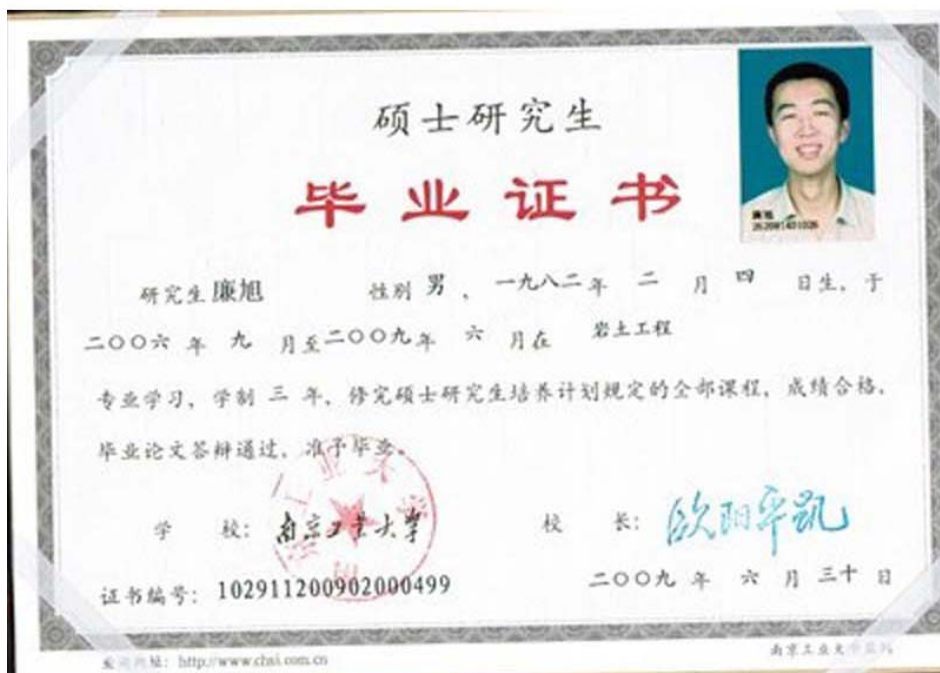 硕士研究生
毕业证书
廉旭
研究生 廉旭 性别 男 ，一九八二年 二 月 四 日生，于
二〇〇六 年 九 月至二〇〇九年 六 月在 岩土工程
专业学习，学制 三 年，修完硕士研究生培养计划规定的全部课程，成绩合格，
毕业论文答辩通过，准予毕业。
学 校：南京工业大学 校 长：欧阳平凯
证书编号：102911200902000499 二〇〇九 年 六 月 三十 日
查询网址：http://www.chsi.com.cn 南京工业大学监制